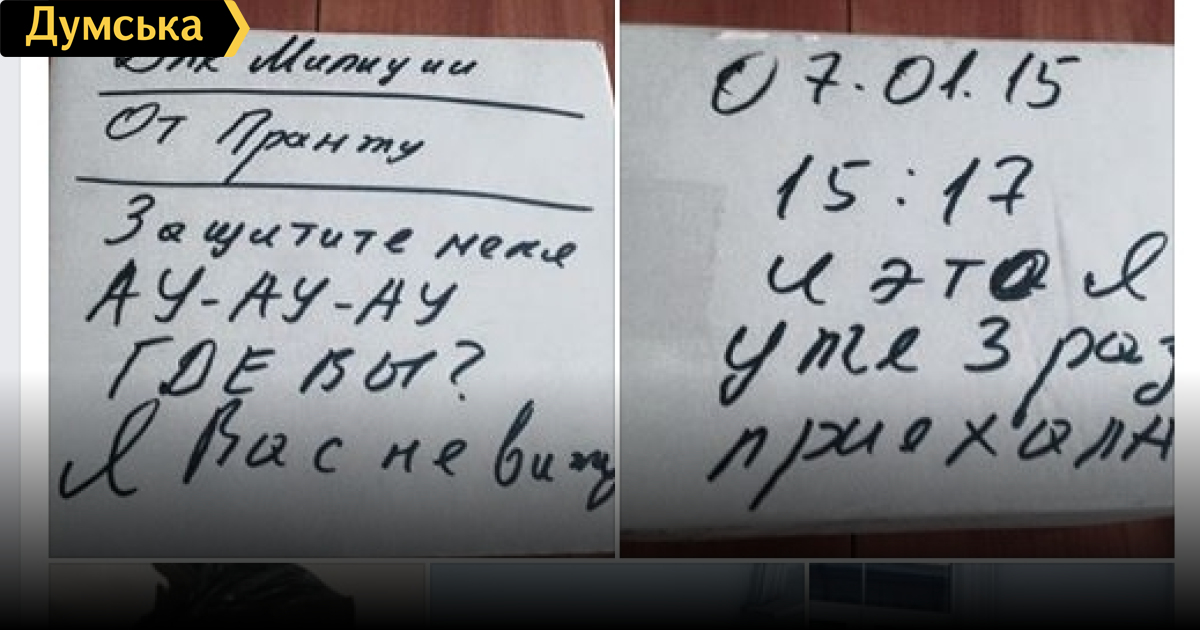 Думська
Для Милиции
От Пранту
Защитите меня
АУ-АУ-АУ
ГДЕ ВЫ?
Я Вас не вижу
07.01.15
15:17
и это я
уже 3 раз
приехала